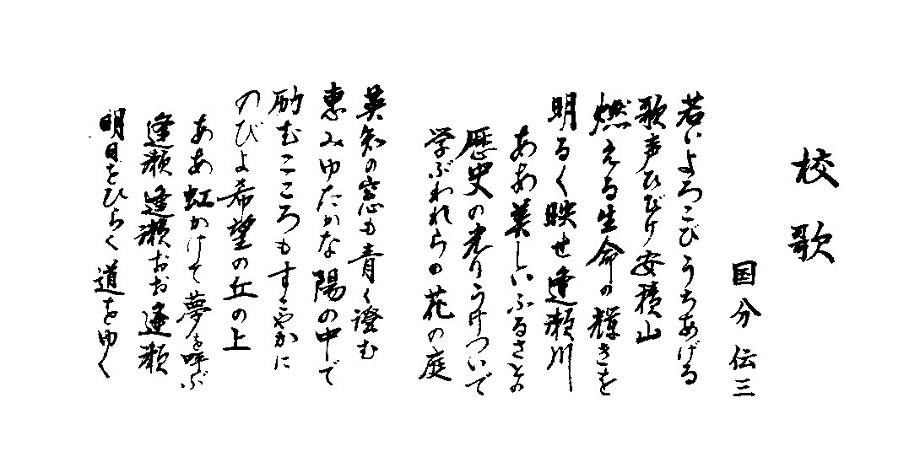 校歌
国分伝三
若いよろこびうちあげる
歌声ひびけ安積山
燃える生命の輝きを
明るく映せ逢瀬川
ああ美しいふるさとの
歴史の光りうけついで
学ぶわれらの花の庭
英知の窓も青く澄む
恵みゆたかな陽の中で
励むこころもすこやかに
のびよ希望の丘の上
ああ虹かけて夢を呼ぶ
逢瀬逢瀬おお逢瀬
明日をひらく道をゆく